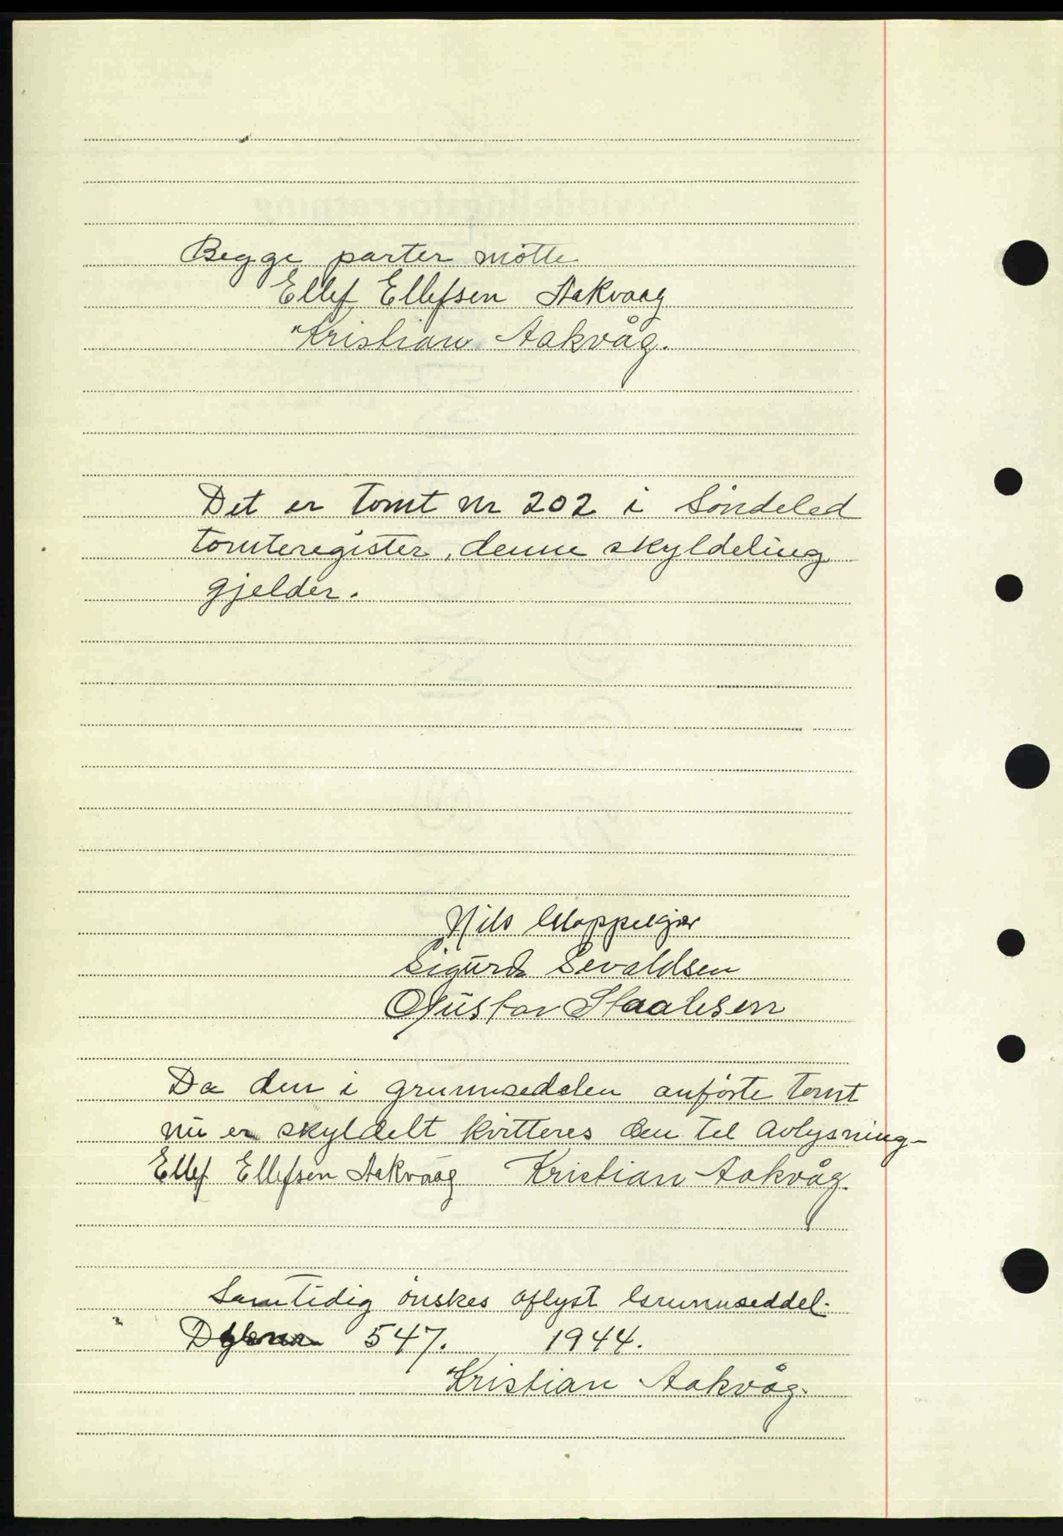 Begge parter møtte
Ellef Ellefsen Aakvaag
Kristian Aakvåg.
Det er tomt nr 202 i Søndeled
tomteregister, denne skyldeling
gjelder.
Nils
Sigurd Sevaldsen
Gustav Staalesen
Da den i grunnsedelen anførte tomt
nu er skyldelt kvitteres den til avlysning-
Ellef Ellefsen Aakvaag Kristian Aakvåg.
Samtidig ønskes aflyst Grunnseddel.
547. 1944.
Kristian Aakvåg.